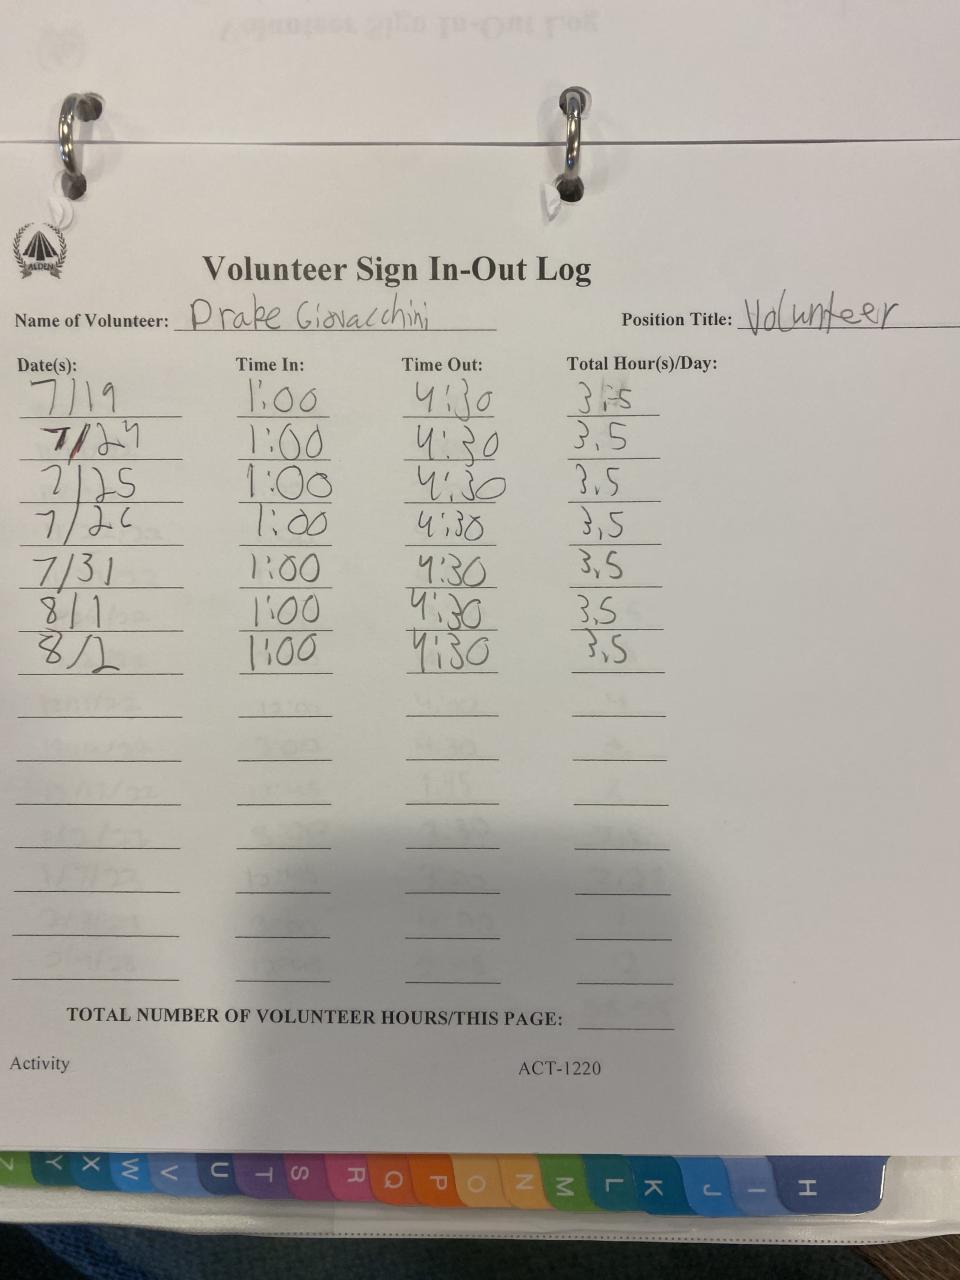 Volunteer Sign In-Out Log
ALDEN
Volunteer Sign In-Out Log
Name of Volunteer: Drake Giovacchini Position Title: Volunteer
Date(s): Time In: Time Out: Total Hour(s)/Day:
7/19 1:00 4:30 3.5
7/24 1:00 4:30 3.5
7/25 1:00 4:30 3.5
7/26 1:00 4:30 3,5
7/31 1:00 4:30 3.5
8/1 1:00 4:30 3.5
8/2 1:00 4:30 3.5
TOTAL NUMBER OF VOLUNTEER HOURS/THIS PAGE:
Activity ACT-1220
Z Y X W V U T S R Q P O N M L K J I H